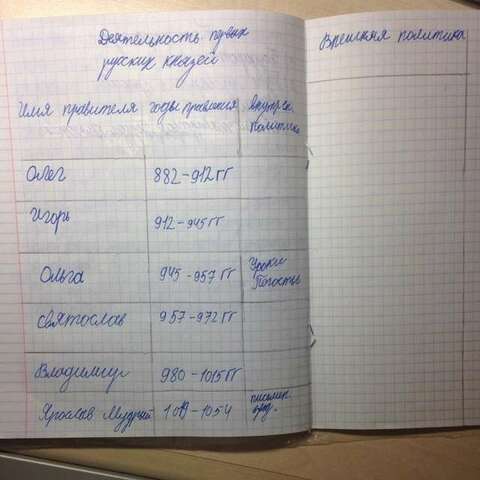 Деятельность первых
русских князей
Внешняя политика
Имя правителя годы правления внутрен.
политика
Олег 882-912 гг
Игорь 912-945 гг
Ольга 945-957 гг Уроки
Погосты
Святослав 957-972 гг
Владимир 980-1015 гг
Ярослав Мудрый 1019-1054 письмен.